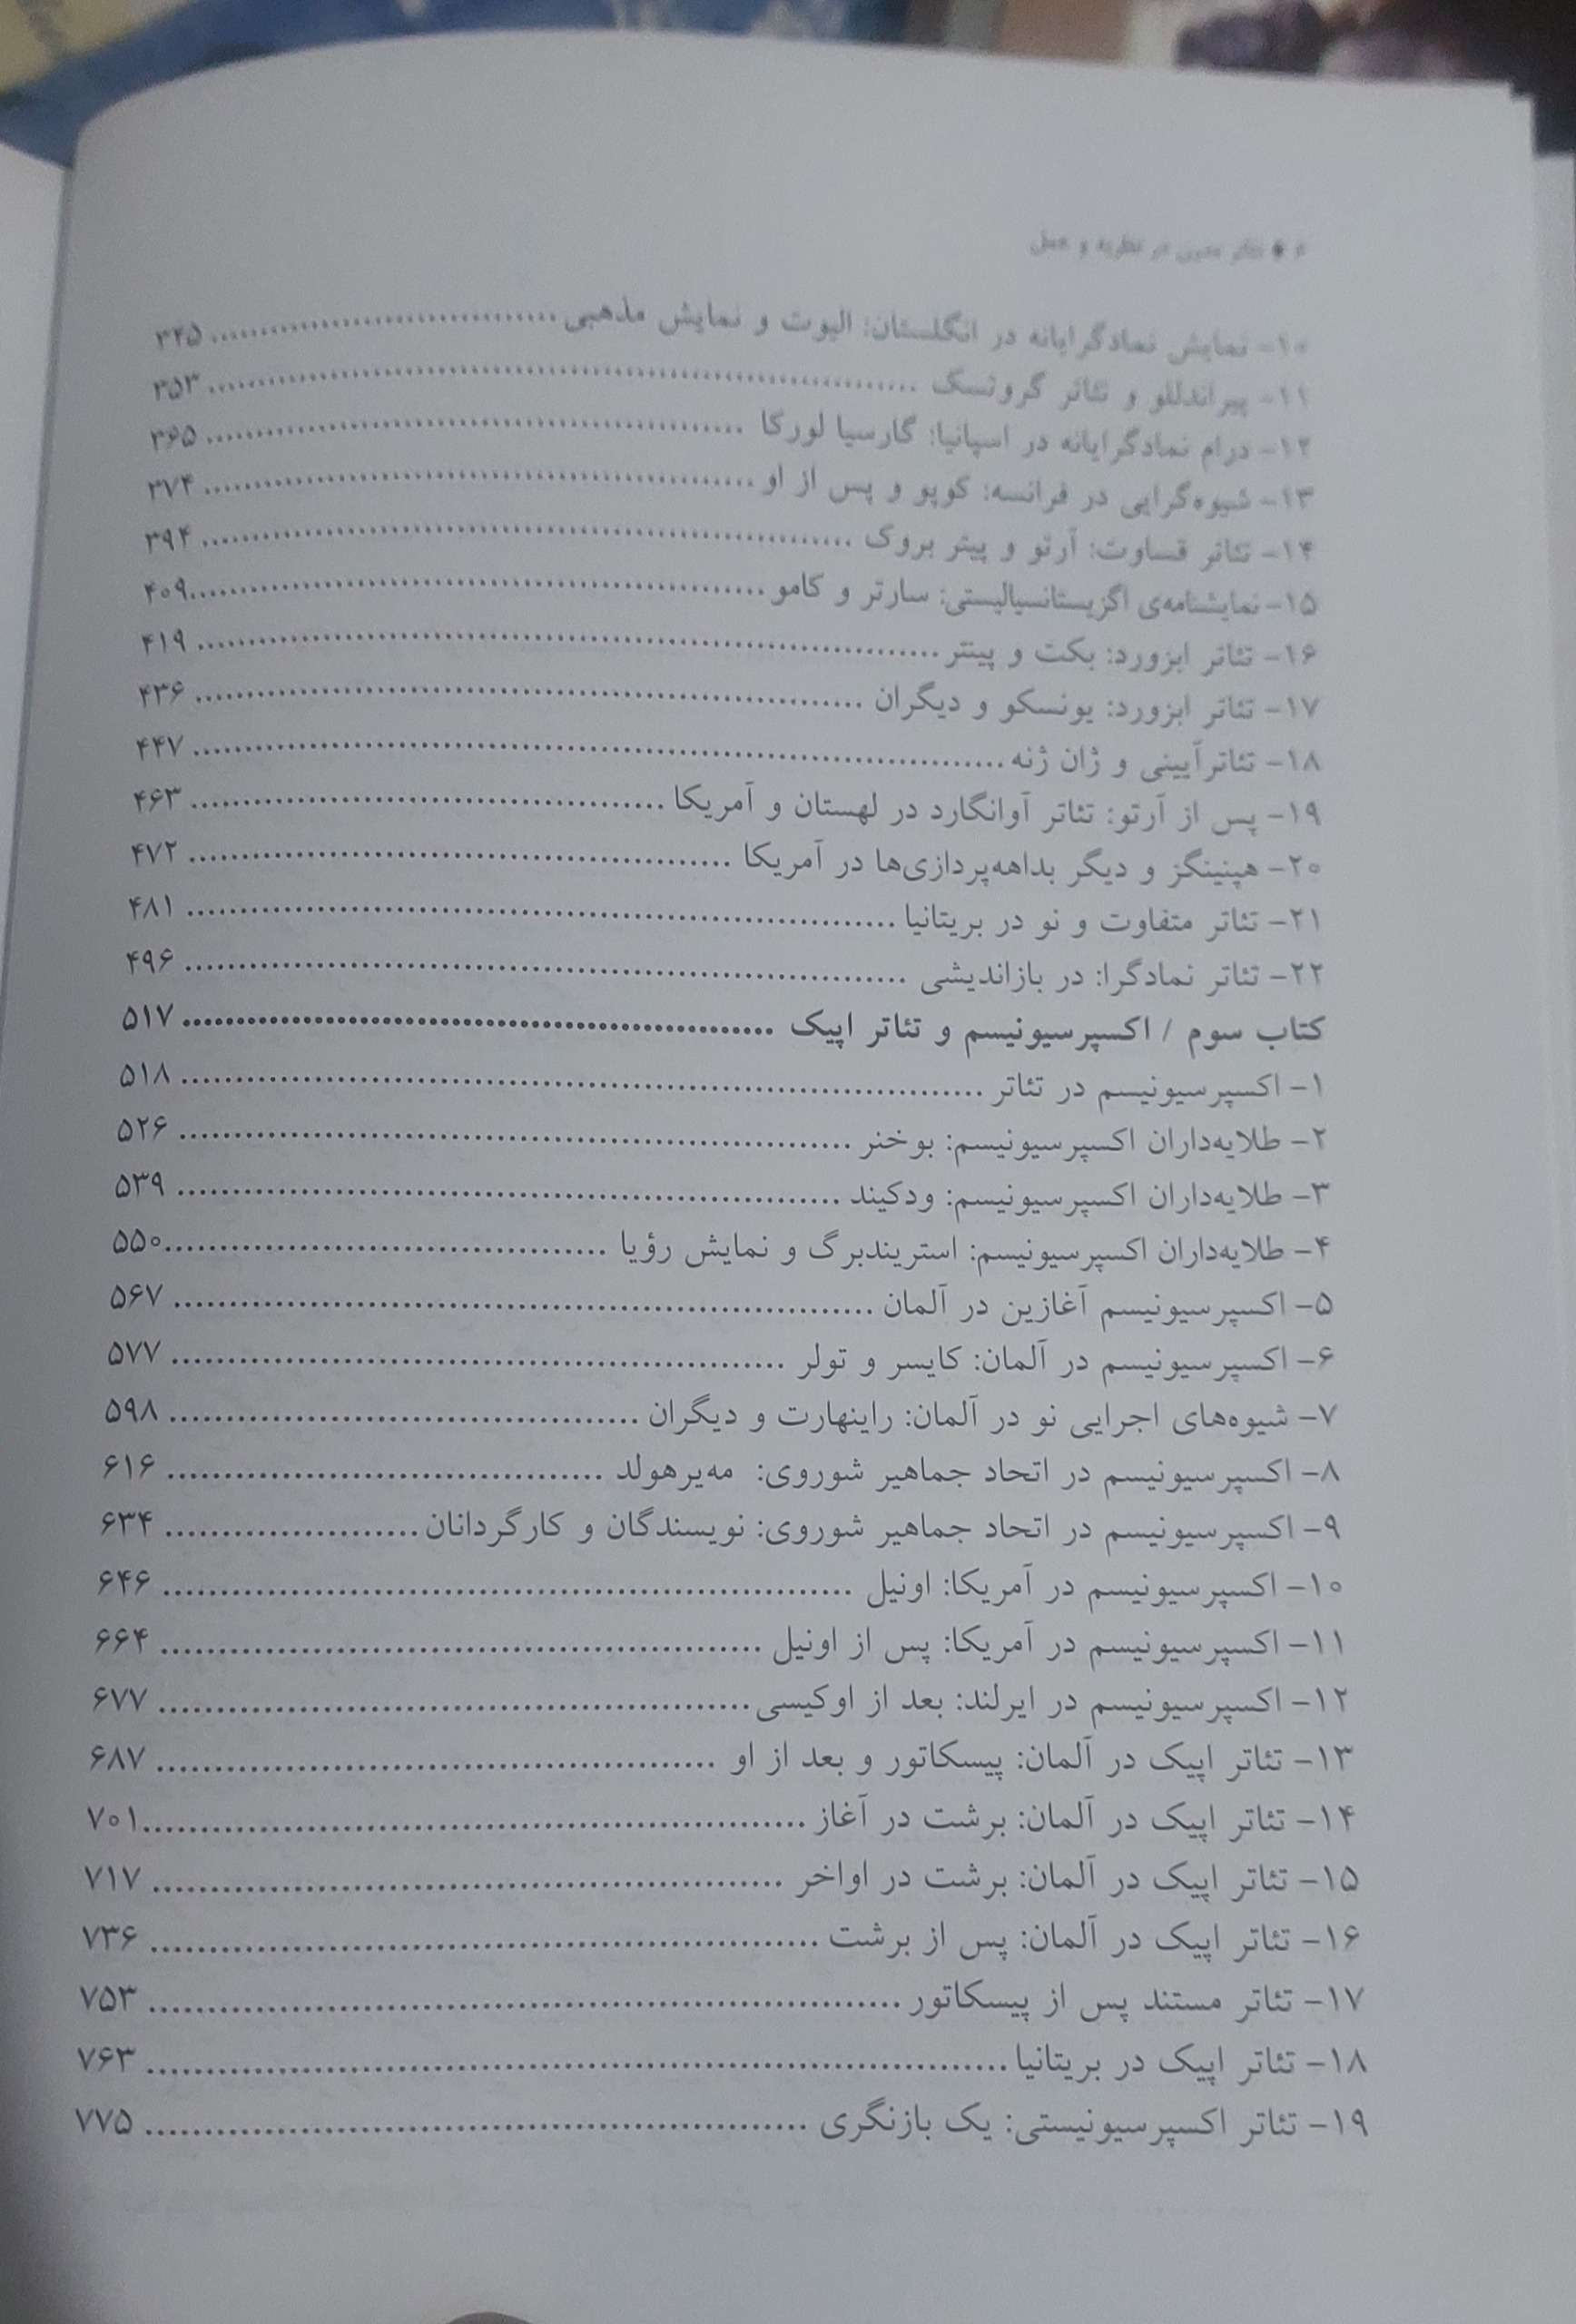 ● تئاتر مدرن در نظریه و عمل
۱۰- نمایش نمادگرایانه در انگلستان: الیوت و نمایش مذهبی ........ ۳۴۵
۱۱- پیراندللو و تئاتر گروتسک ........ ۳۵۳
۱۲- درام نمادگرایانه در اسپانیا: گارسیا لورکا ........ ۳۶۵
۱۳- شیوه‌گرایی در فرانسه: کوپو و پس از او ........ ۳۷۴
۱۴- تئاتر قساوت: آرتو و پیتر بروک ........ ۳۹۴
۱۵- نمایشنامه‌ی اگزیستانسیالیستی: سارتر و کامو ........ ۴۰۹
۱۶- تئاتر ابزورد: بکت و پینتر ........ ۴۱۹
۱۷- تئاتر ابزورد: یونسکو و دیگران ........ ۴۳۶
۱۸- تئاترآیینی و ژان ژنه ........ ۴۴۷
۱۹- پس از آرتو: تئاتر آوانگارد در لهستان و آمریکا ........ ۴۶۳
۲۰- هپنینگز و دیگر بداهه‌پردازی‌ها در آمریکا ........ ۴۷۲
۲۱- تئاتر متفاوت و نو در بریتانیا ........ ۴۸۱
۲۲- تئاتر نمادگرا: در بازاندیشی ........ ۴۹۶
کتاب سوم / اکسپرسیونیسم و تئاتر اپیک ........ ۵۱۷
۱- اکسپرسیونیسم در تئاتر ........ ۵۱۸
۲- طلایه‌داران اکسپرسیونیسم: بوخنر ........ ۵۲۶
۳- طلایه‌داران اکسپرسیونیسم: ودکیند ........ ۵۳۹
۴- طلایه‌داران اکسپرسیونیسم: استریندبرگ و نمایش رؤیا ........ ۵۵۰
۵- اکسپرسیونیسم آغازین در آلمان ........ ۵۶۷
۶- اکسپرسیونیسم در آلمان: کایسر و تولر ........ ۵۷۷
۷- شیوه‌های اجرایی نو در آلمان: راینهارت و دیگران ........ ۵۹۸
۸- اکسپرسیونیسم در اتحاد جماهیر شوروی: مه‌یرهولد ........ ۶۱۶
۹- اکسپرسیونیسم در اتحاد جماهیر شوروی: نویسندگان و کارگردانان ........ ۶۳۴
۱۰- اکسپرسیونیسم در آمریکا: اونیل ........ ۶۴۶
۱۱- اکسپرسیونیسم در آمریکا: پس از اونیل ........ ۶۶۴
۱۲- اکسپرسیونیسم در ایرلند: بعد از اوکیسی ........ ۶۷۷
۱۳- تئاتر اپیک در آلمان: پیسکاتور و بعد از او ........ ۶۸۷
۱۴- تئاتر اپیک در آلمان: برشت در آغاز ........ ۷۰۱
۱۵- تئاتر اپیک در آلمان: برشت در اواخر ........ ۷۱۷
۱۶- تئاتر اپیک در آلمان: پس از برشت ........ ۷۳۶
۱۷- تئاتر مستند پس از پیسکاتور ........ ۷۵۳
۱۸- تئاتر اپیک در بریتانیا ........ ۷۶۳
۱۹- تئاتر اکسپرسیونیستی: یک بازنگری ........ ۷۷۵